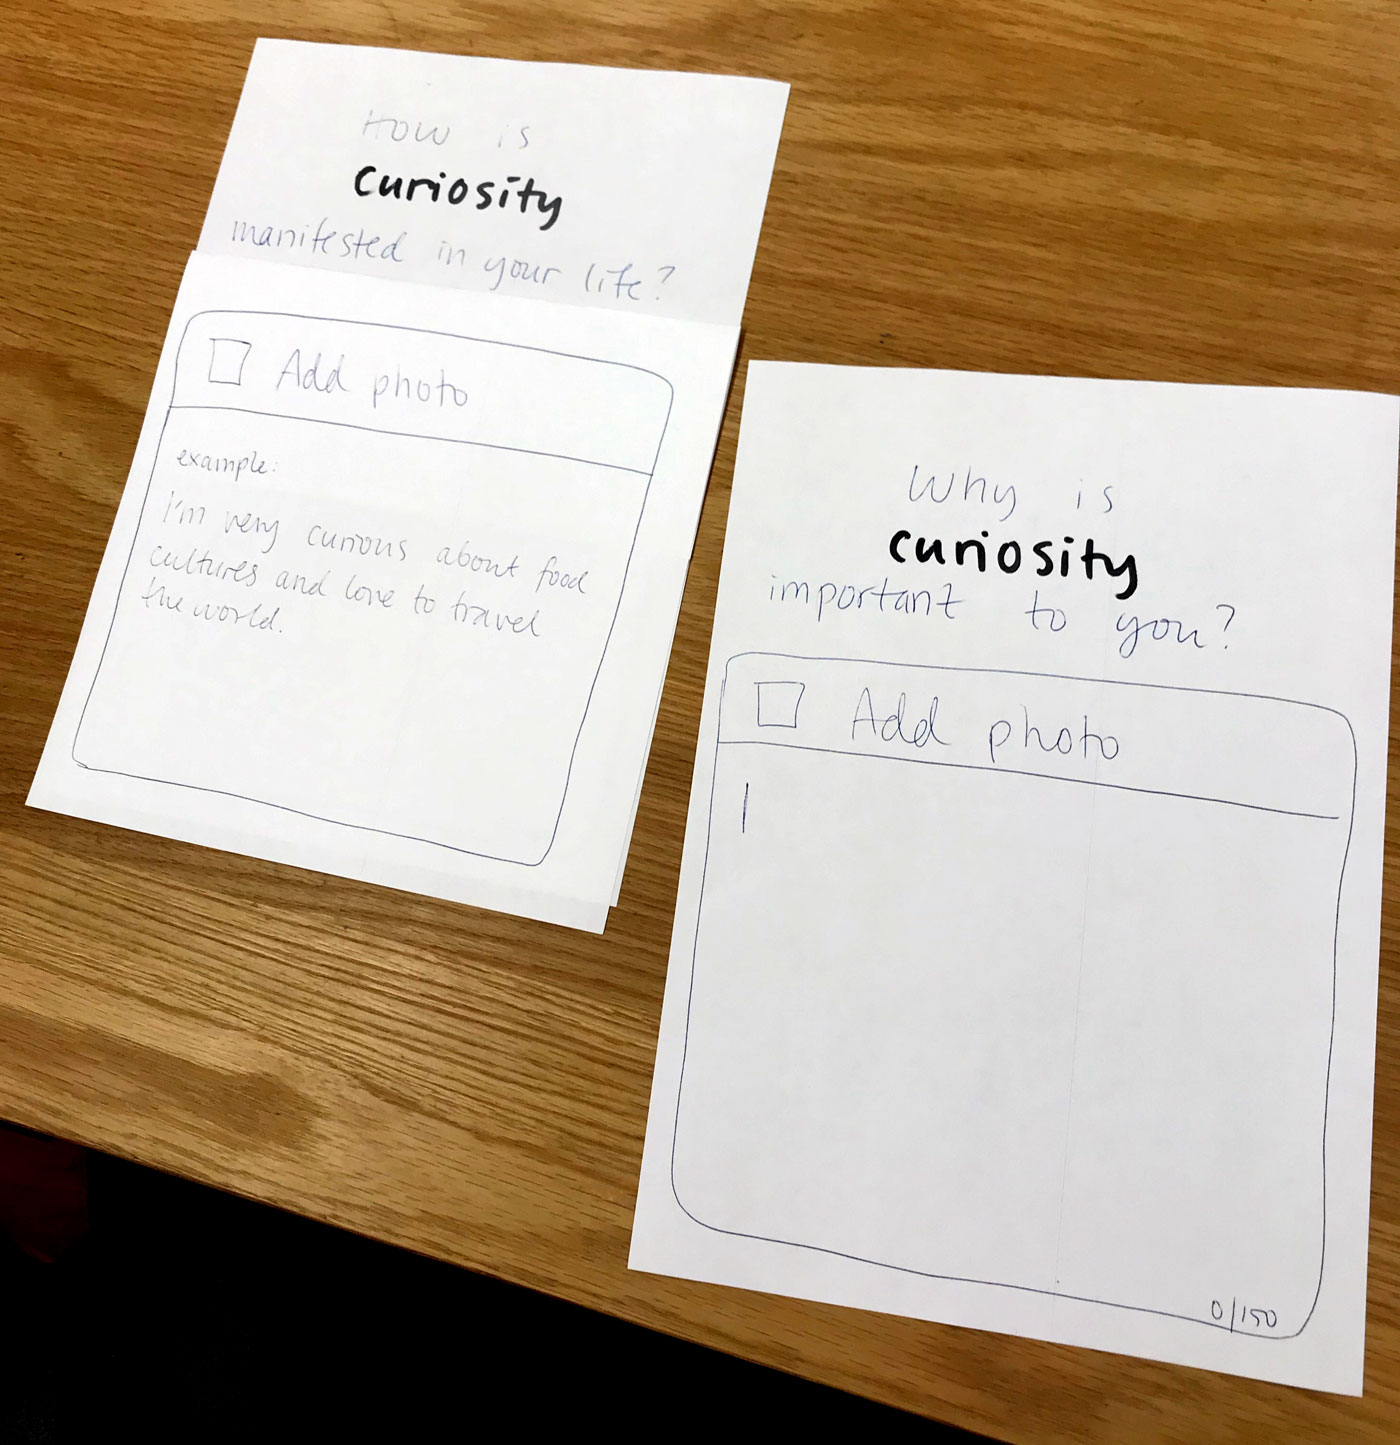 How is
curiosity
manifested in your life?
Add photo
example:
I'm very curious about food
cultures and love to travel
the world.
Why is
curiosity
important to you?
Add photo
0/150